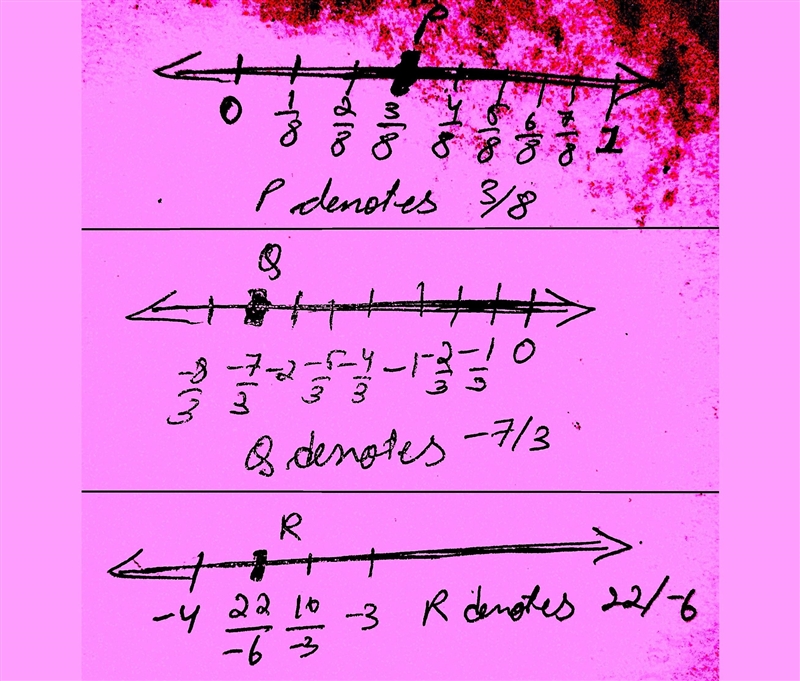 P
0 1/8 2/8 3/8 4/8 5/8 6/8 7/8 1
P denotes 3/8
Q
-8/3 -7/3 -2 -5/3 -4/3 -1 -2/3 -1/3 0
Q denotes -7/3
R
-4 22/-6 10/-3 -3 R denotes 22/-6